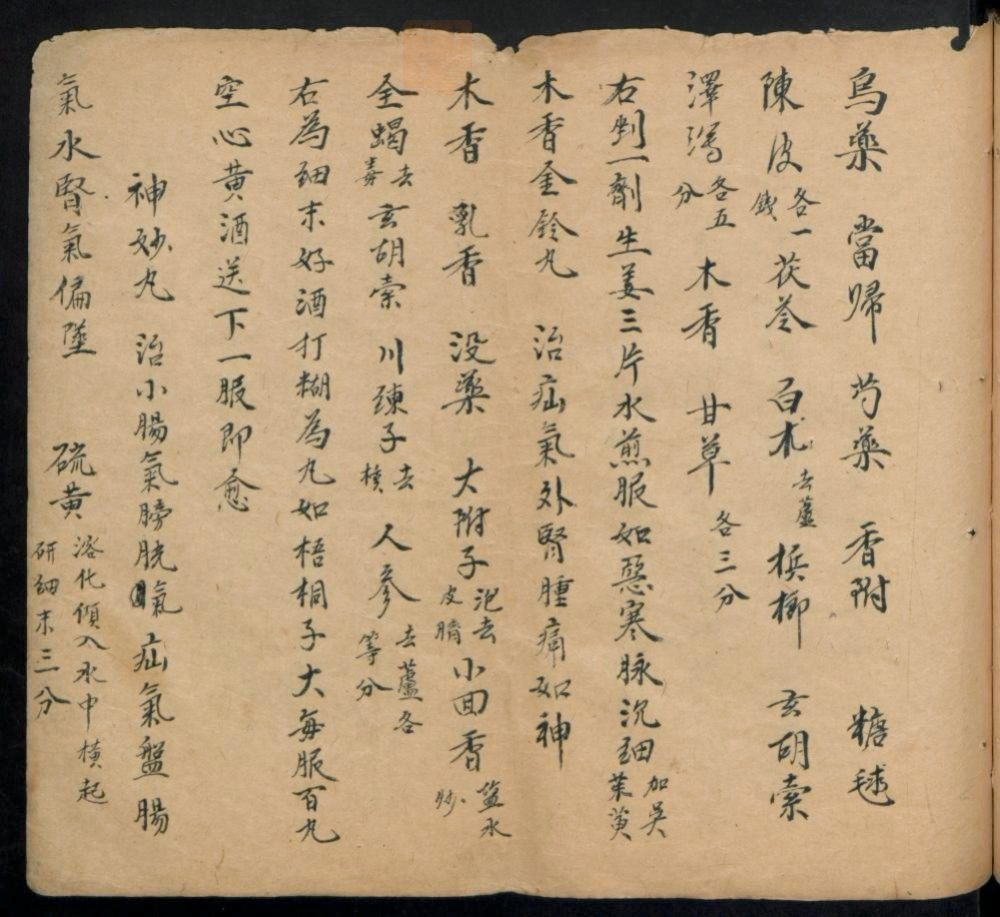 烏藥 當歸 芍藥 香附 糖毬
陳皮各一錢 茯苓 白朮去蘆 檳榔 玄胡索
澤瀉各五分 木香 甘草各三分
右剉一劑生姜三片水煎服如惡寒脉沉細加吳茱萸
木香金鈴丸 治疝氣外腎腫痛如神
木香 乳香 没藥 大附子泡去皮臍 小茴香盐水炒
全蝎去毒 玄胡索 川䋛子去核 人參去蘆各等分
右為細末好酒打糊為丸如梧桐子大每服百丸
空心黄酒送下一服即愈
神妙丸 治小腸氣膀胱氣疝氣盤腸
氣水腎氣偏墜 硫黄溶化傾入水中橫起研細末三分